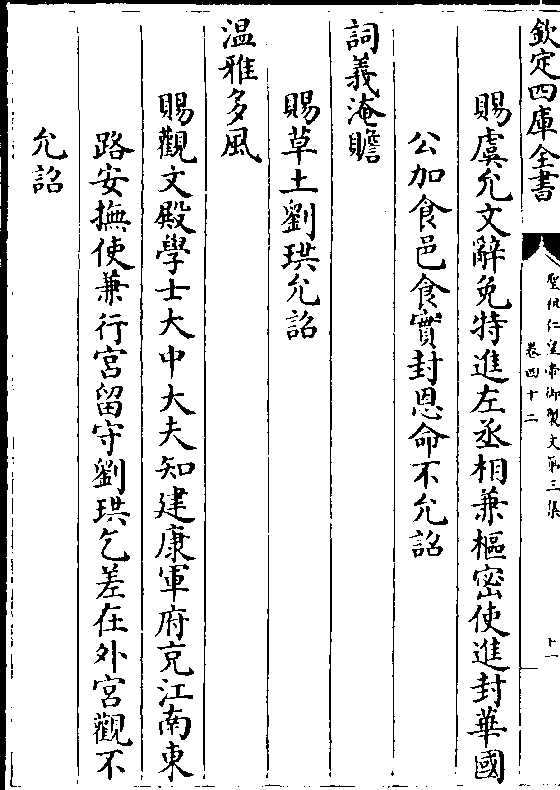 欽定四庫全書
聖祖仁皇帝御製文第三集
卷四十二
十一
賜虞允文辭免特進左丞相兼樞密使進封華國
公加食邑食實封恩命不允詔
詞義淹贍
賜草土劉珙允詔
温雅多風
賜觀文殿學士大中大夫知建康軍府充江南東
路安撫使兼行宮留守劉珙乞差在外宮觀不
允詔